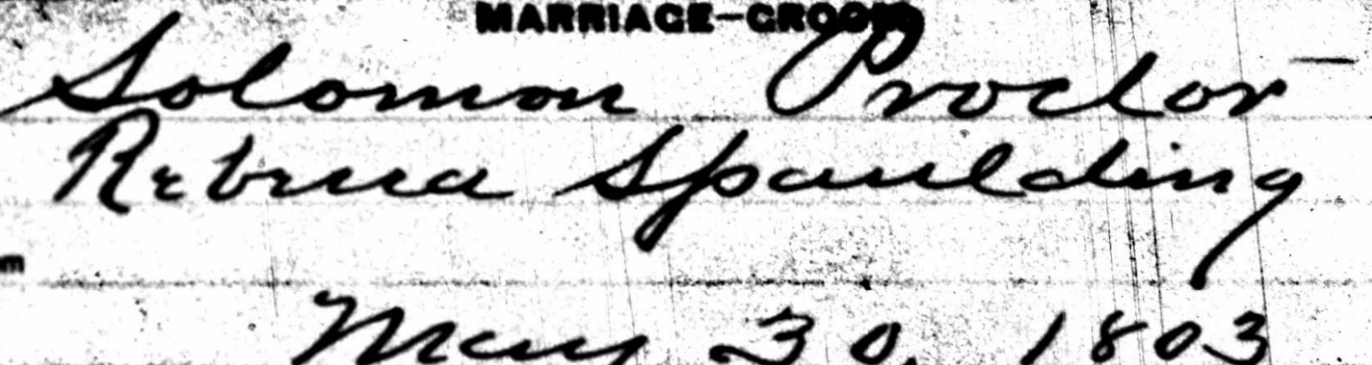 MARRIAGE-GROOM
Solomon Proctor
Rebecca Spaulding
m
May 30, 1803